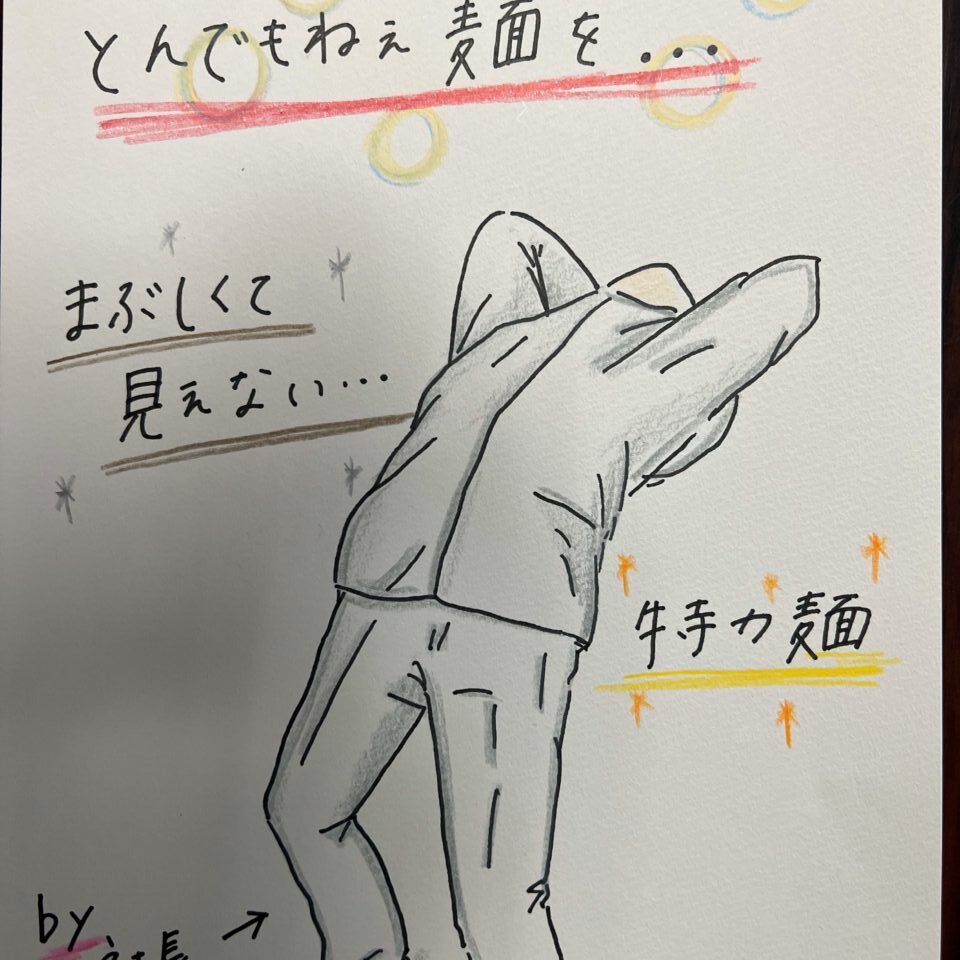 とんでもねぇ麺を...
まぶしくて
見えない...
特力麺
by
社長